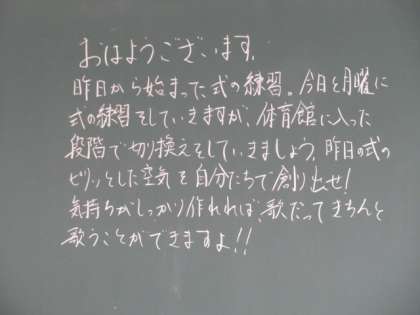 おはようございます。
昨日から始まった式の練習。今日と月曜に
式の練習をしていきますが、体育館に入った
段階で切り換えをしていきましょう。昨日の式の
ピリッとした空気を自分たちで創り出せ!
気持ちがしっかり作れれば、歌だってきちんと
歌うことができますよ!!